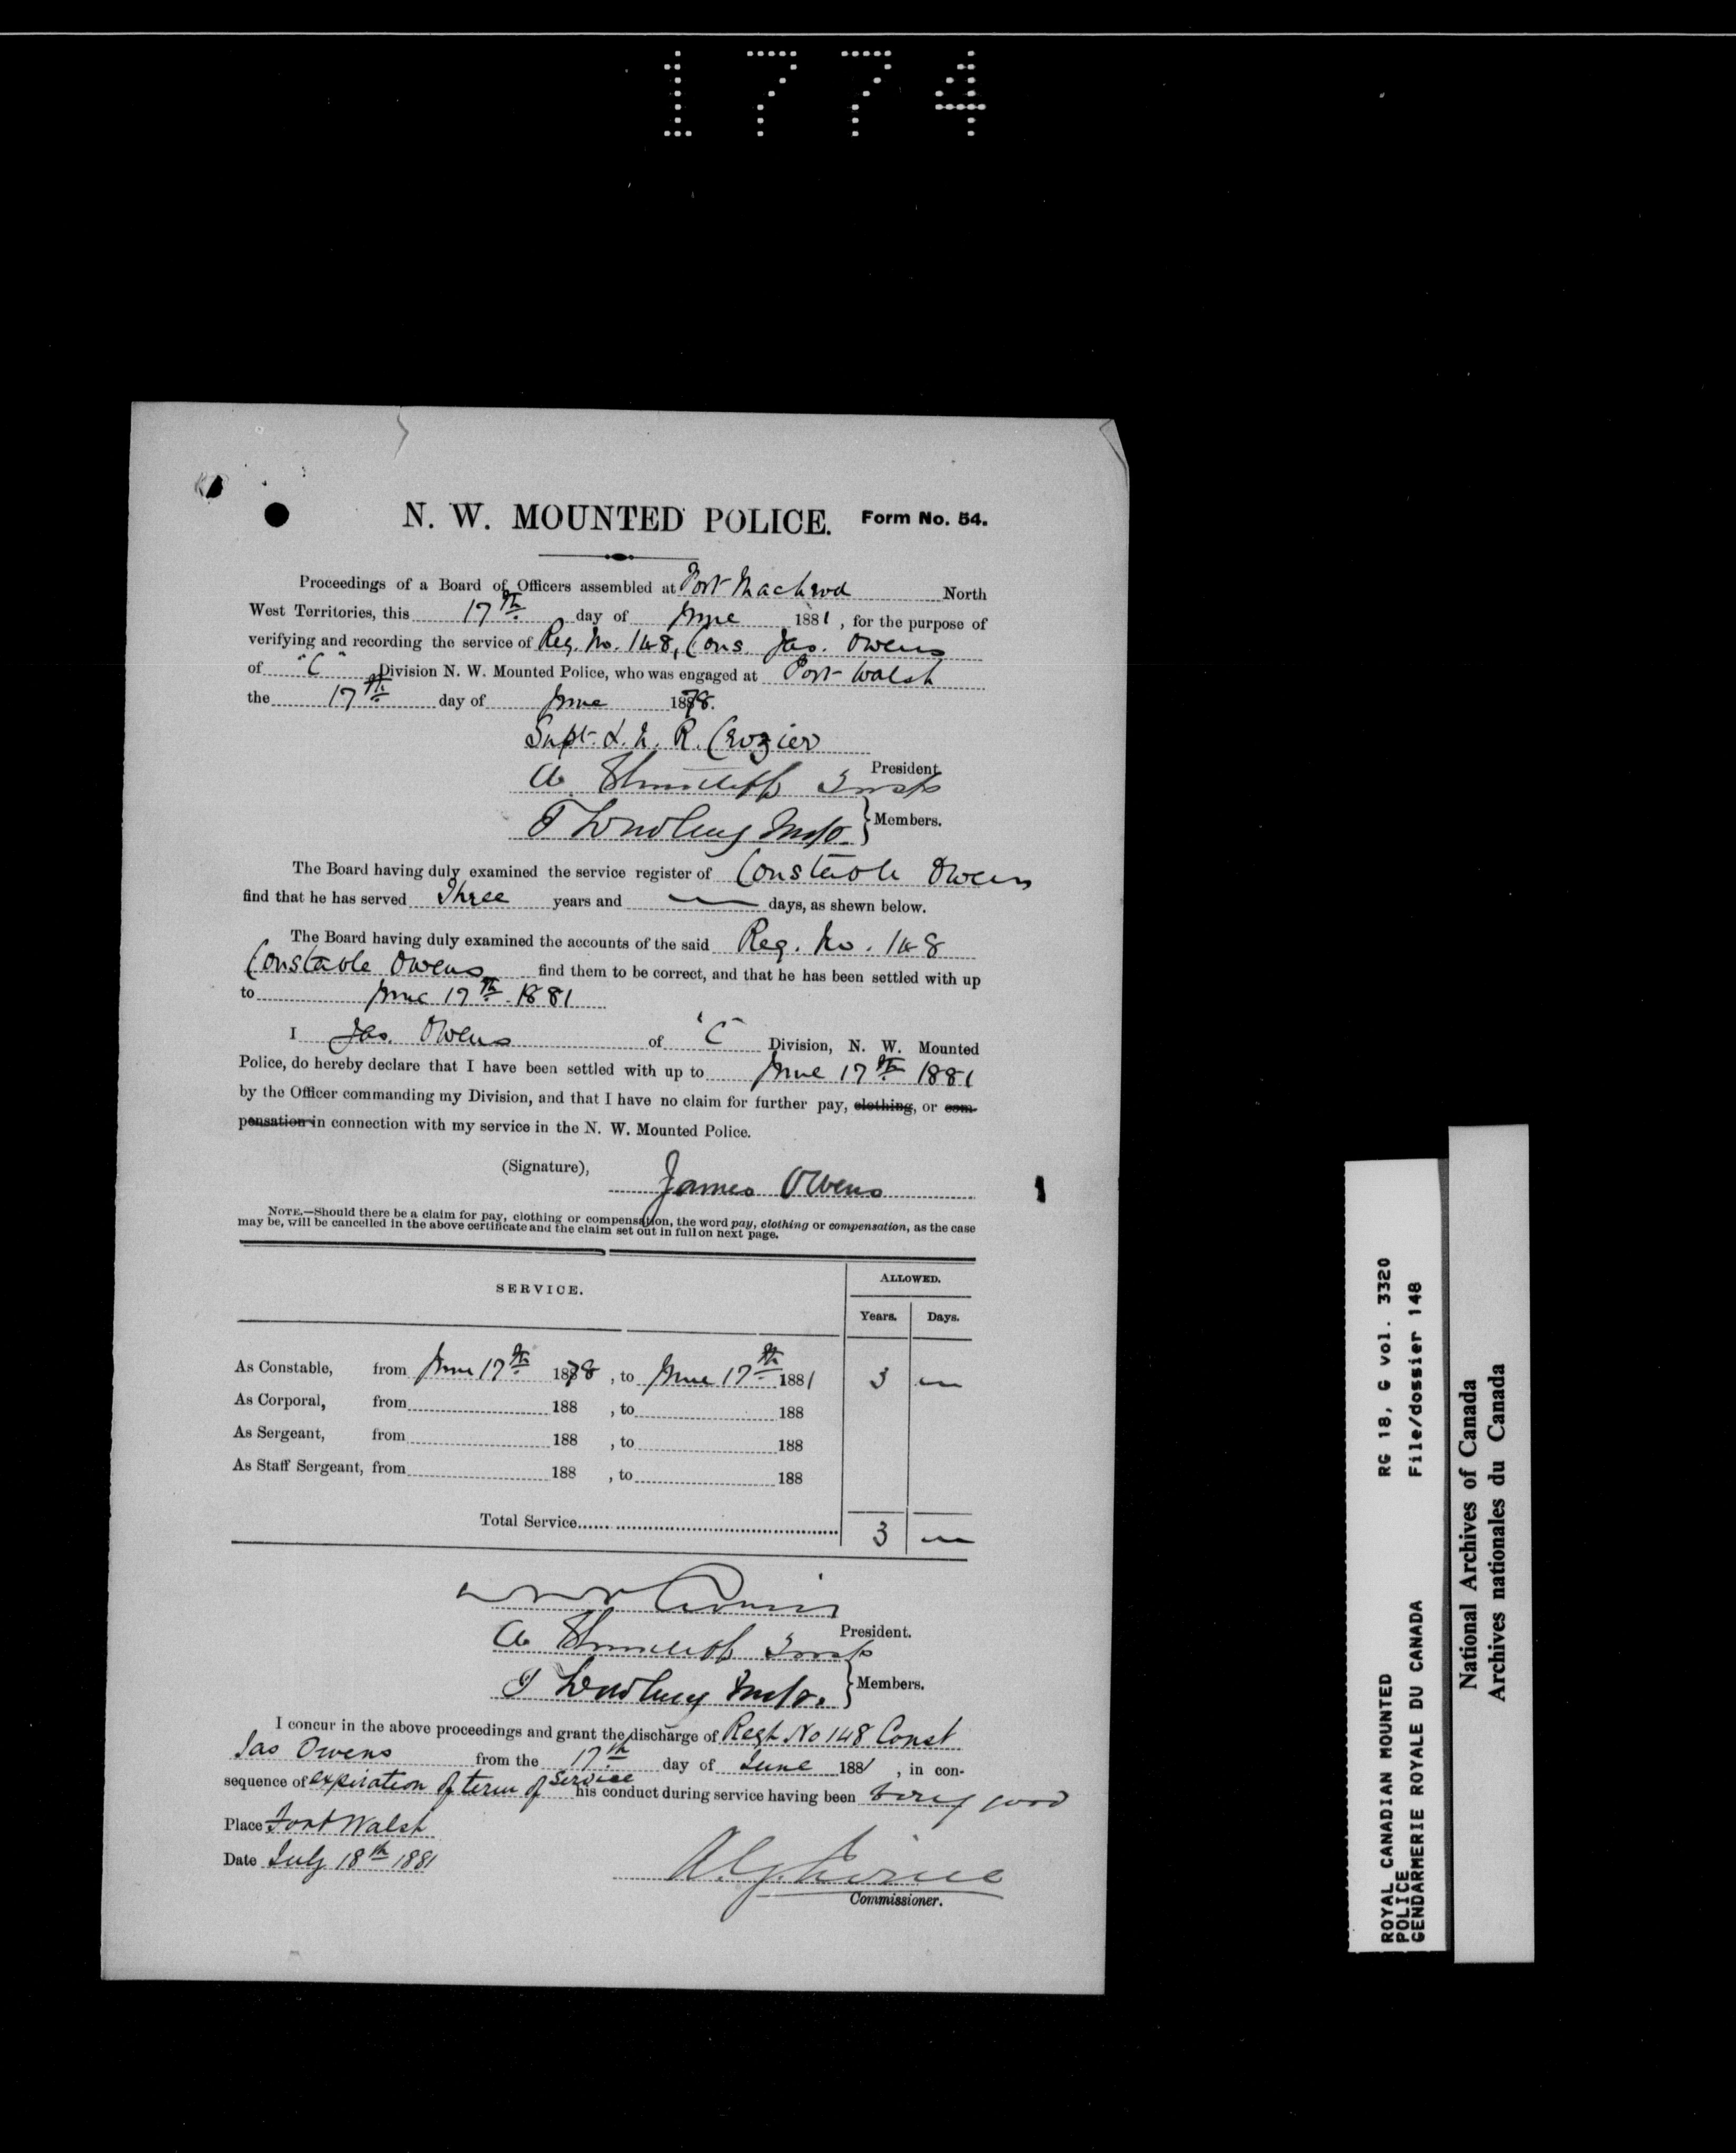 1774
N. W. MOUNTED POLICE. Form No. 54.
Proceedings of a Board of Officers assembled at Fort Macleod North
West Territories, this 17th day of June 1881, for the purpose of
verifying and recording the service of Reg. No. 148, Cons. Jas. Owens
of "C" Division N. W. Mounted Police, who was engaged at Fort Walsh
the 17th day of June 1878.
Supt. L. N. R. Crozier
President.
A. Shurtcliff Insp
Members.
The Board having duly examined the service register of Constable Owens
find that he has served Three years and — days, as shewn below.
The Board having duly examined the accounts of the said Reg. No. 148
Constable Owens find them to be correct, and that he has been settled with up
to June 17th 1881
I Jas. Owens of "C" Division, N. W. Mounted
Police, do hereby declare that I have been settled with up to June 17th 1881
by the Officer commanding my Division, and that I have no claim for further pay, clothing, or com-
pensation in connection with my service in the N. W. Mounted Police.
(Signature), James Owens
NOTE.—Should there be a claim for pay, clothing or compensation, the word pay, clothing or compensation, as the case
may be, will be cancelled in the above certificate and the claim set out in full on next page.
SERVICE. ALLOWED.
Years. Days.
As Constable, from June 17th 1878, to June 17th 1881 3 —
As Corporal, from 188 , to 188
As Sergeant, from 188 , to 188
As Staff Sergeant, from 188 , to 188
Total Service 3 —
President.
A. Shurtcliff Insp
Members.
I concur in the above proceedings and grant the discharge of Regt. No 148 Const
Jas Owens from the 17th day of June 1881, in con-
sequence of expiration of term of service his conduct during service having been very good
Place Fort Walsh
Date July 18th 1881
A. G. Irvine
Commissioner.
ROYAL CANADIAN MOUNTED RG 18, G vol. 3320
POLICE
GENDARMERIE ROYALE DU CANADA File/dossier 148
National Archives of Canada
Archives nationales du Canada